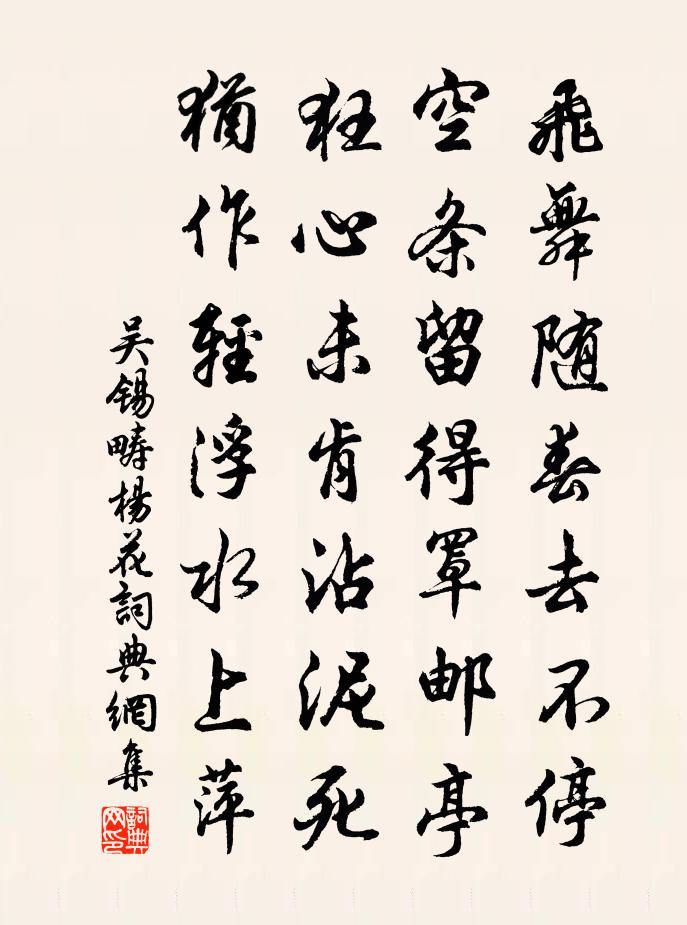 飛舞随春去不停
空条留得罩邮亭
狂心未肯沾泥死
猶作輕浮水上萍
吴锡畴楊花詞典網集
詞典网印